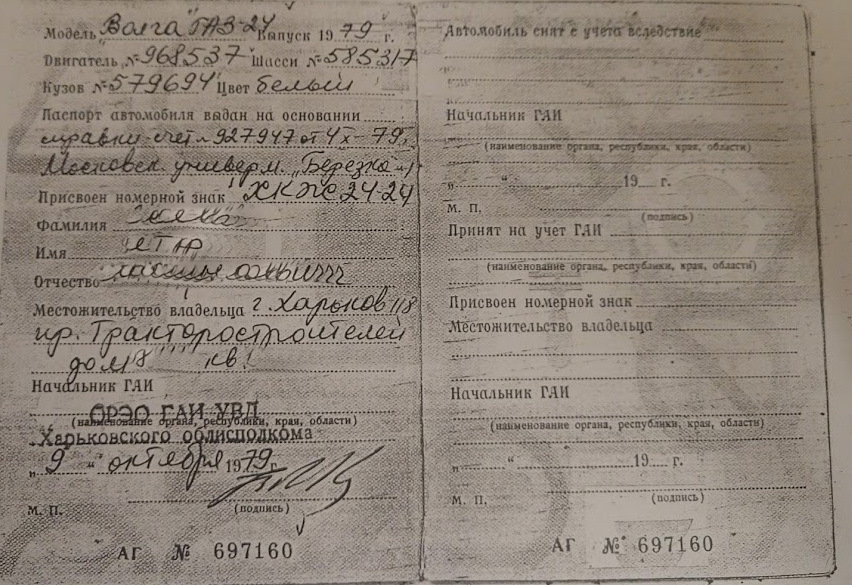 Модель "Волга" ГАЗ-24 Выпуск 1979 г.
Двигатель № 968537 Шасси № 585317
Кузов № 579694 Цвет белый
Паспорт автомобиля выдан на основании
справки-счет № 927947 от 4 X-79г.
Московск. универм. "Березка"
Присвоен номерной знак ХКЖ 24-24
Фамилия
Имя
Отчество
Местожительство владельца г. Харьков 118
пр. Тракторостроителей
дом кв.
Начальник ГАИ
ОРЭО ГАИ УВД
(наименование органа, республики, края, области)
Харьковского облисполкома
„9“ октября 1979 г.
М. П. (подпись)
АГ № 697160
Автомобиль снят с учета вследствие
Начальник ГАИ
(наименование органа, республики, края, области)
„ “ 19 г.
М. П. (подпись)
Принят на учет ГАИ
(наименование органа, республики, края, области)
Присвоен номерной знак
Местожительство владельца
Начальник ГАИ
(наименование органа, республики, края, области)
„ “ 19 г.
М. П. (подпись)
АГ № 697160